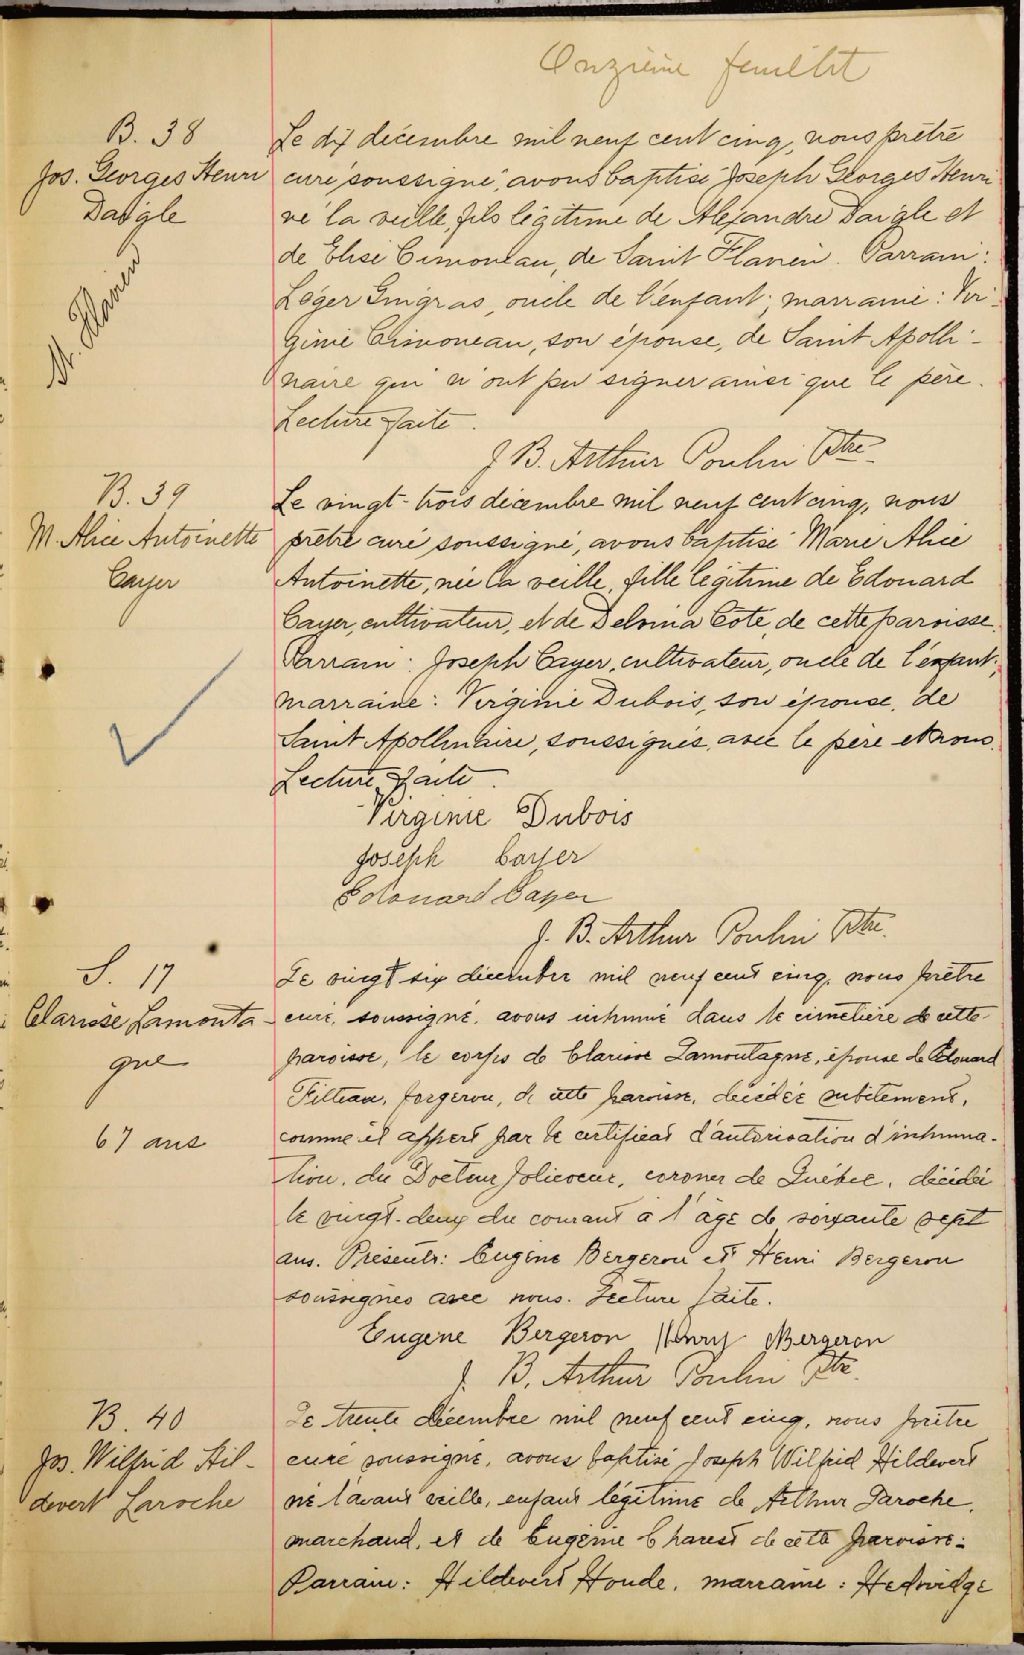 Onzième feuillet
B. 38
Jos. Georges Henri
Daigle
St. Flavien
Le dix décembre mil neuf cent cinq, nous prêtre
curé soussigné, avons baptisé Joseph Georges Henri
né la veille, fils légitime de Alexandre Daigle et
de Elise Cimoneau, de Saint Flavien. Parrain:
Léger Gingras, oncle de l'enfant; marraine: Vir-
ginie Cimoneau, son épouse, de Saint Apolli-
naire qui n'ont pu signer ainsi que le père.
Lecture faite.
J. B. Arthur Poulin Ptre
B. 39
M. Alice Antoinette
Cayer
Le vingt-trois décembre mil neuf cent cinq, nous
prêtre curé soussigné, avons baptisé Marie Alice
Antoinette, née la veille, fille légitime de Edouard
Cayer, cultivateur, et de Delvina Côté, de cette paroisse.
Parrain: Joseph Cayer, cultivateur, oncle de l'enfant;
marraine: Virginie Dubois, son épouse, de
Saint Apollinaire, soussignés avec le père et nous.
Lecture faite.
Virginie Dubois
Joseph Cayer
Edouard Cayer
J. B. Arthur Poulin Ptre.
S. 17
Clarisse Lamonta-
gne
67 ans
Le vingt six décembre mil neuf cent cinq, nous prêtre
curé, soussigné, avons inhumé dans le cimetière de cette
paroisse, le corps de Clarisse Lamontagne, épouse de Edouard
Filteau, forgeron, de cette paroisse, décédée subitement,
comme il appert par le certificat d'autorisation d'inhuma-
tion, du Docteur Jolicoeur, coroner de Québec, décédée
le vingt-deux du courant à l'âge de soixante sept
ans. Présents: Eugène Bergeron et Henri Bergeron
soussignés avec nous. Lecture faite.
Eugène Bergeron Henry Bergeron
J. B. Arthur Poulin Ptre.
B. 40
Jos. Wilfrid Hil-
devert Laroche
Le trente décembre mil neuf cent cinq, nous prêtre
curé soussigné, avons baptisé Joseph Wilfrid Hildevert
né l'avant veille, enfant légitime de Arthur Laroche,
marchand, et de Eugénie Charest de cette paroisse:
Parrain: Hildevert Houde, marraine: Hedwidge